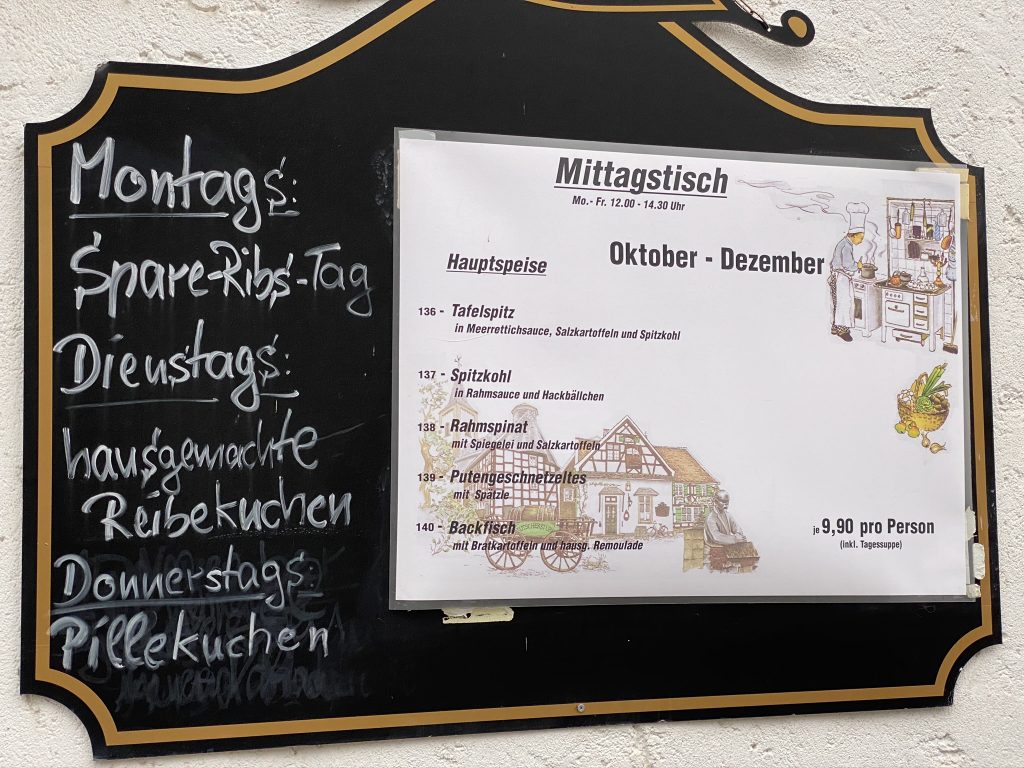 Montags:
Spare-Ribs-Tag
Dienstags:
hausgemachte
Reibekuchen
Donnerstags:
Pillekuchen
Mittagstisch
Mo.- Fr. 12.00 - 14.30 Uhr
Oktober - Dezember
Hauptspeise
136 - Tafelspitz
in Meerrettichsauce, Salzkartoffeln und Spitzkohl
137 - Spitzkohl
in Rahmsauce und Hackbällchen
138 - Rahmspinat
mit Spiegelei und Salzkartoffeln
139 - Putengeschnetzeltes
mit Spätzle
140 - Backfisch
mit Bratkartoffeln und hausg. Remoulade
je 9,90 pro Person
(inkl. Tagessuppe)